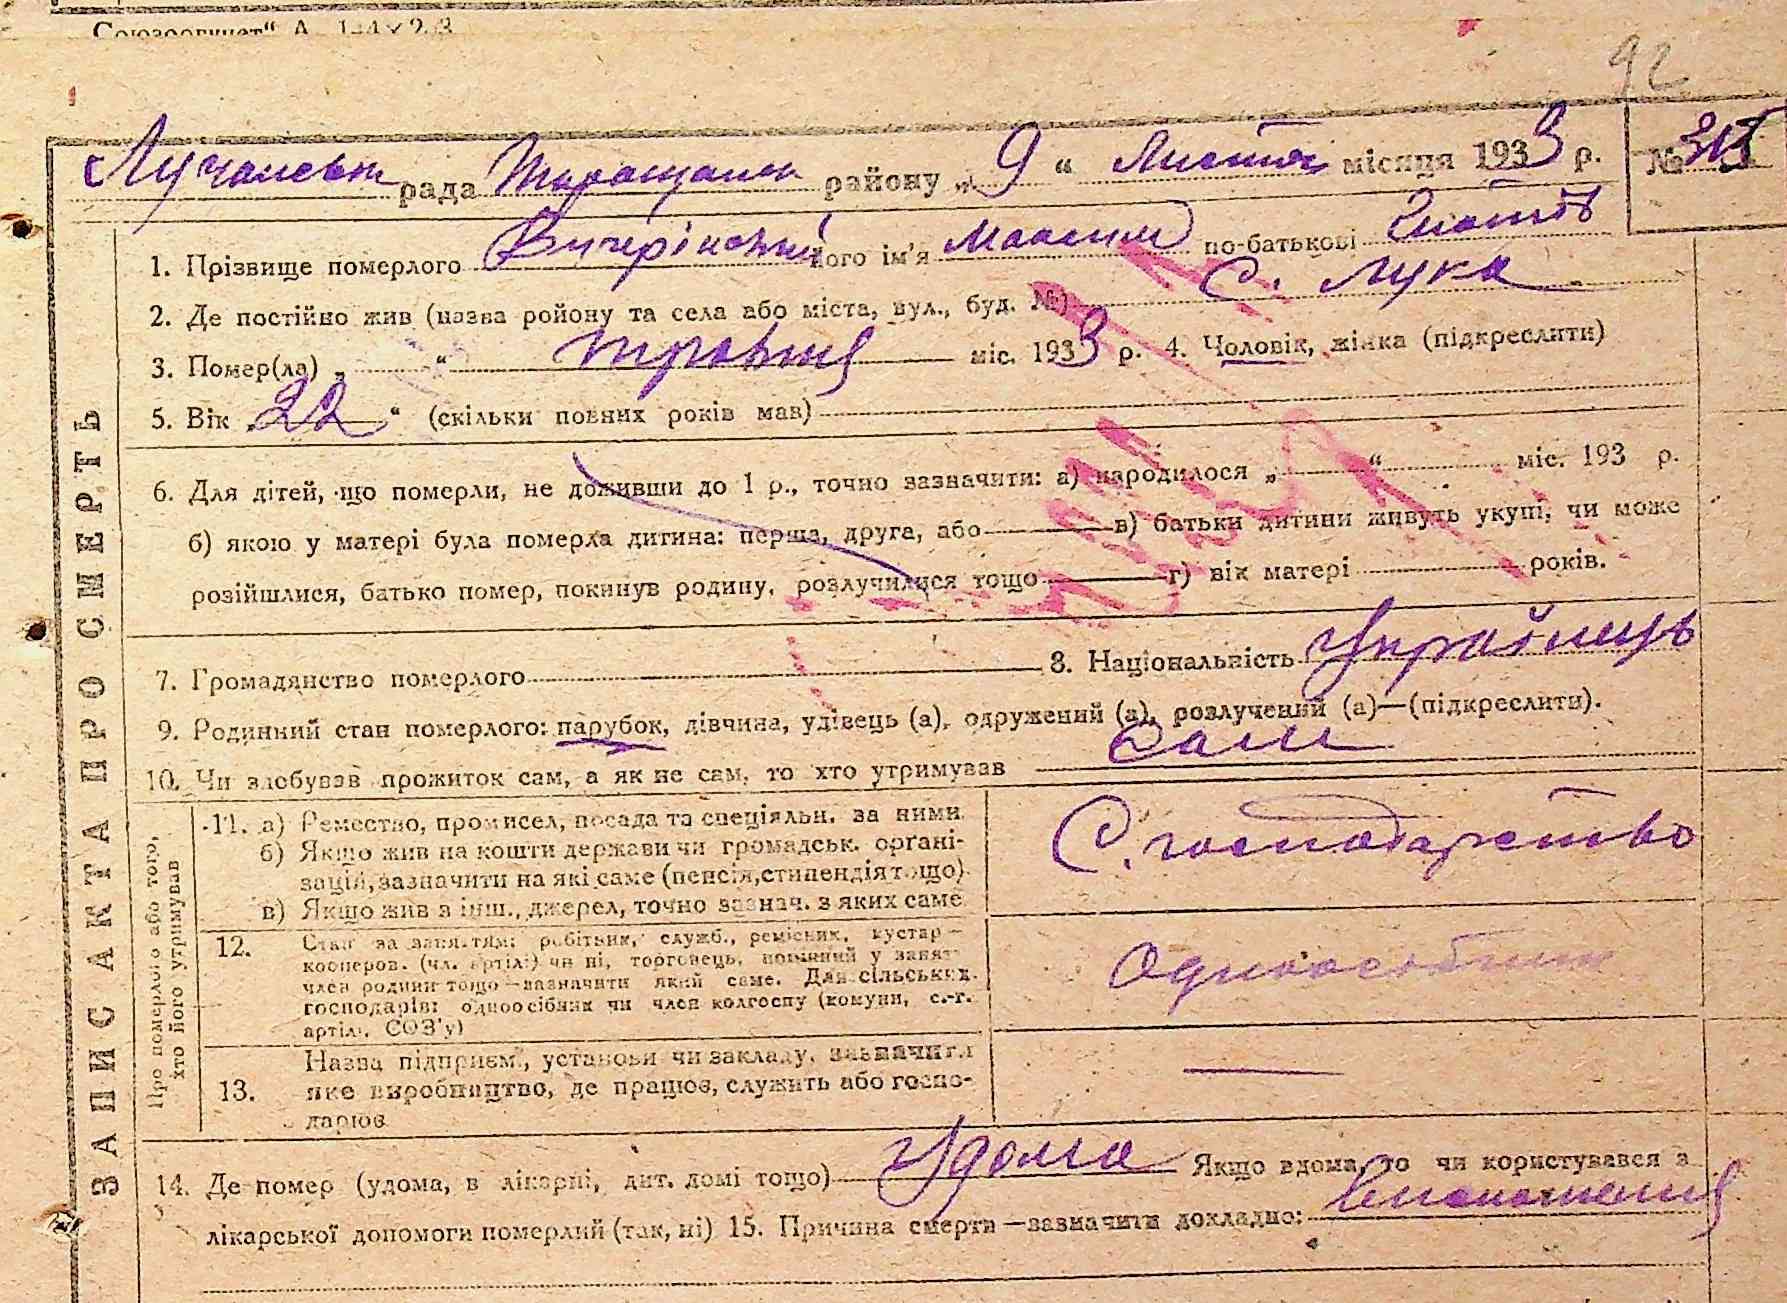 92
Лучанська рада Таращанськ району „9“ Листоп місяця 1933 р. №
1. Прізвище померлого його ім'я Максим по-батькові
2. Де постійно жив (назва району та села або міста, вул., буд. №) С. Лука
3. Помер(ла) „ “ травня міс. 1933 р. 4. Чоловік, жінка (підкреслити)
5. Вік „32“ (скільки повних років мав)
6. Для дітей, що померли, не доживши до 1 р., точно зазначити: а) народилося „ “ міс. 193 р.
б) якою у матері була померла дитина: перша, друга, або в) батьки дитини живуть укупі, чи може
розійшлися, батько помер, покинув родину, розлучилися тощо г) вік матері років.
7. Громадянство померлого 8. Національність Українець
9. Родинний стан померлого: парубок, дівчина, удівець (а), одружений (а), розлучений (а)—(підкреслити).
10. Чи здобував прожиток сам, а як не сам, то хто утримував Сам
ЗАПИСКА ПРО СМЕРТЬ
Про померлого або того,
хто його утримував
11. а) Ремество, промисел, посада та спеціяльн. за ними
б) Якщо жив на кошти держави чи громадськ. органі-
зацій, зазначити на які саме (пенсія, стипендія тощо)
в) Якщо жив з інш., джерел, точно зазнач. з яких саме
С. господарство
12. Стан за заняттям: робітник, служб., ремісник, кустар—
кооперов. (чл. артілі) чи ні, торговець, помічний у занят-
член родини тощо—зазначити який саме. Для сільських
господарів: одноосібник чи член колгоспу (комуни, с.-г.
артілі, СОЗ'у)
Одноосібник
13. Назва підприєм., установи чи закладу, зазначити
яке виробництво, де працює, служить або госпо-
дарює
14. Де помер (удома, в лікарні, дит. домі тощо) Удома Якщо вдома, то чи користувався з
лікарської допомоги померлий (так, ні) 15. Причина смерти—зазначити докладно: Виснаження